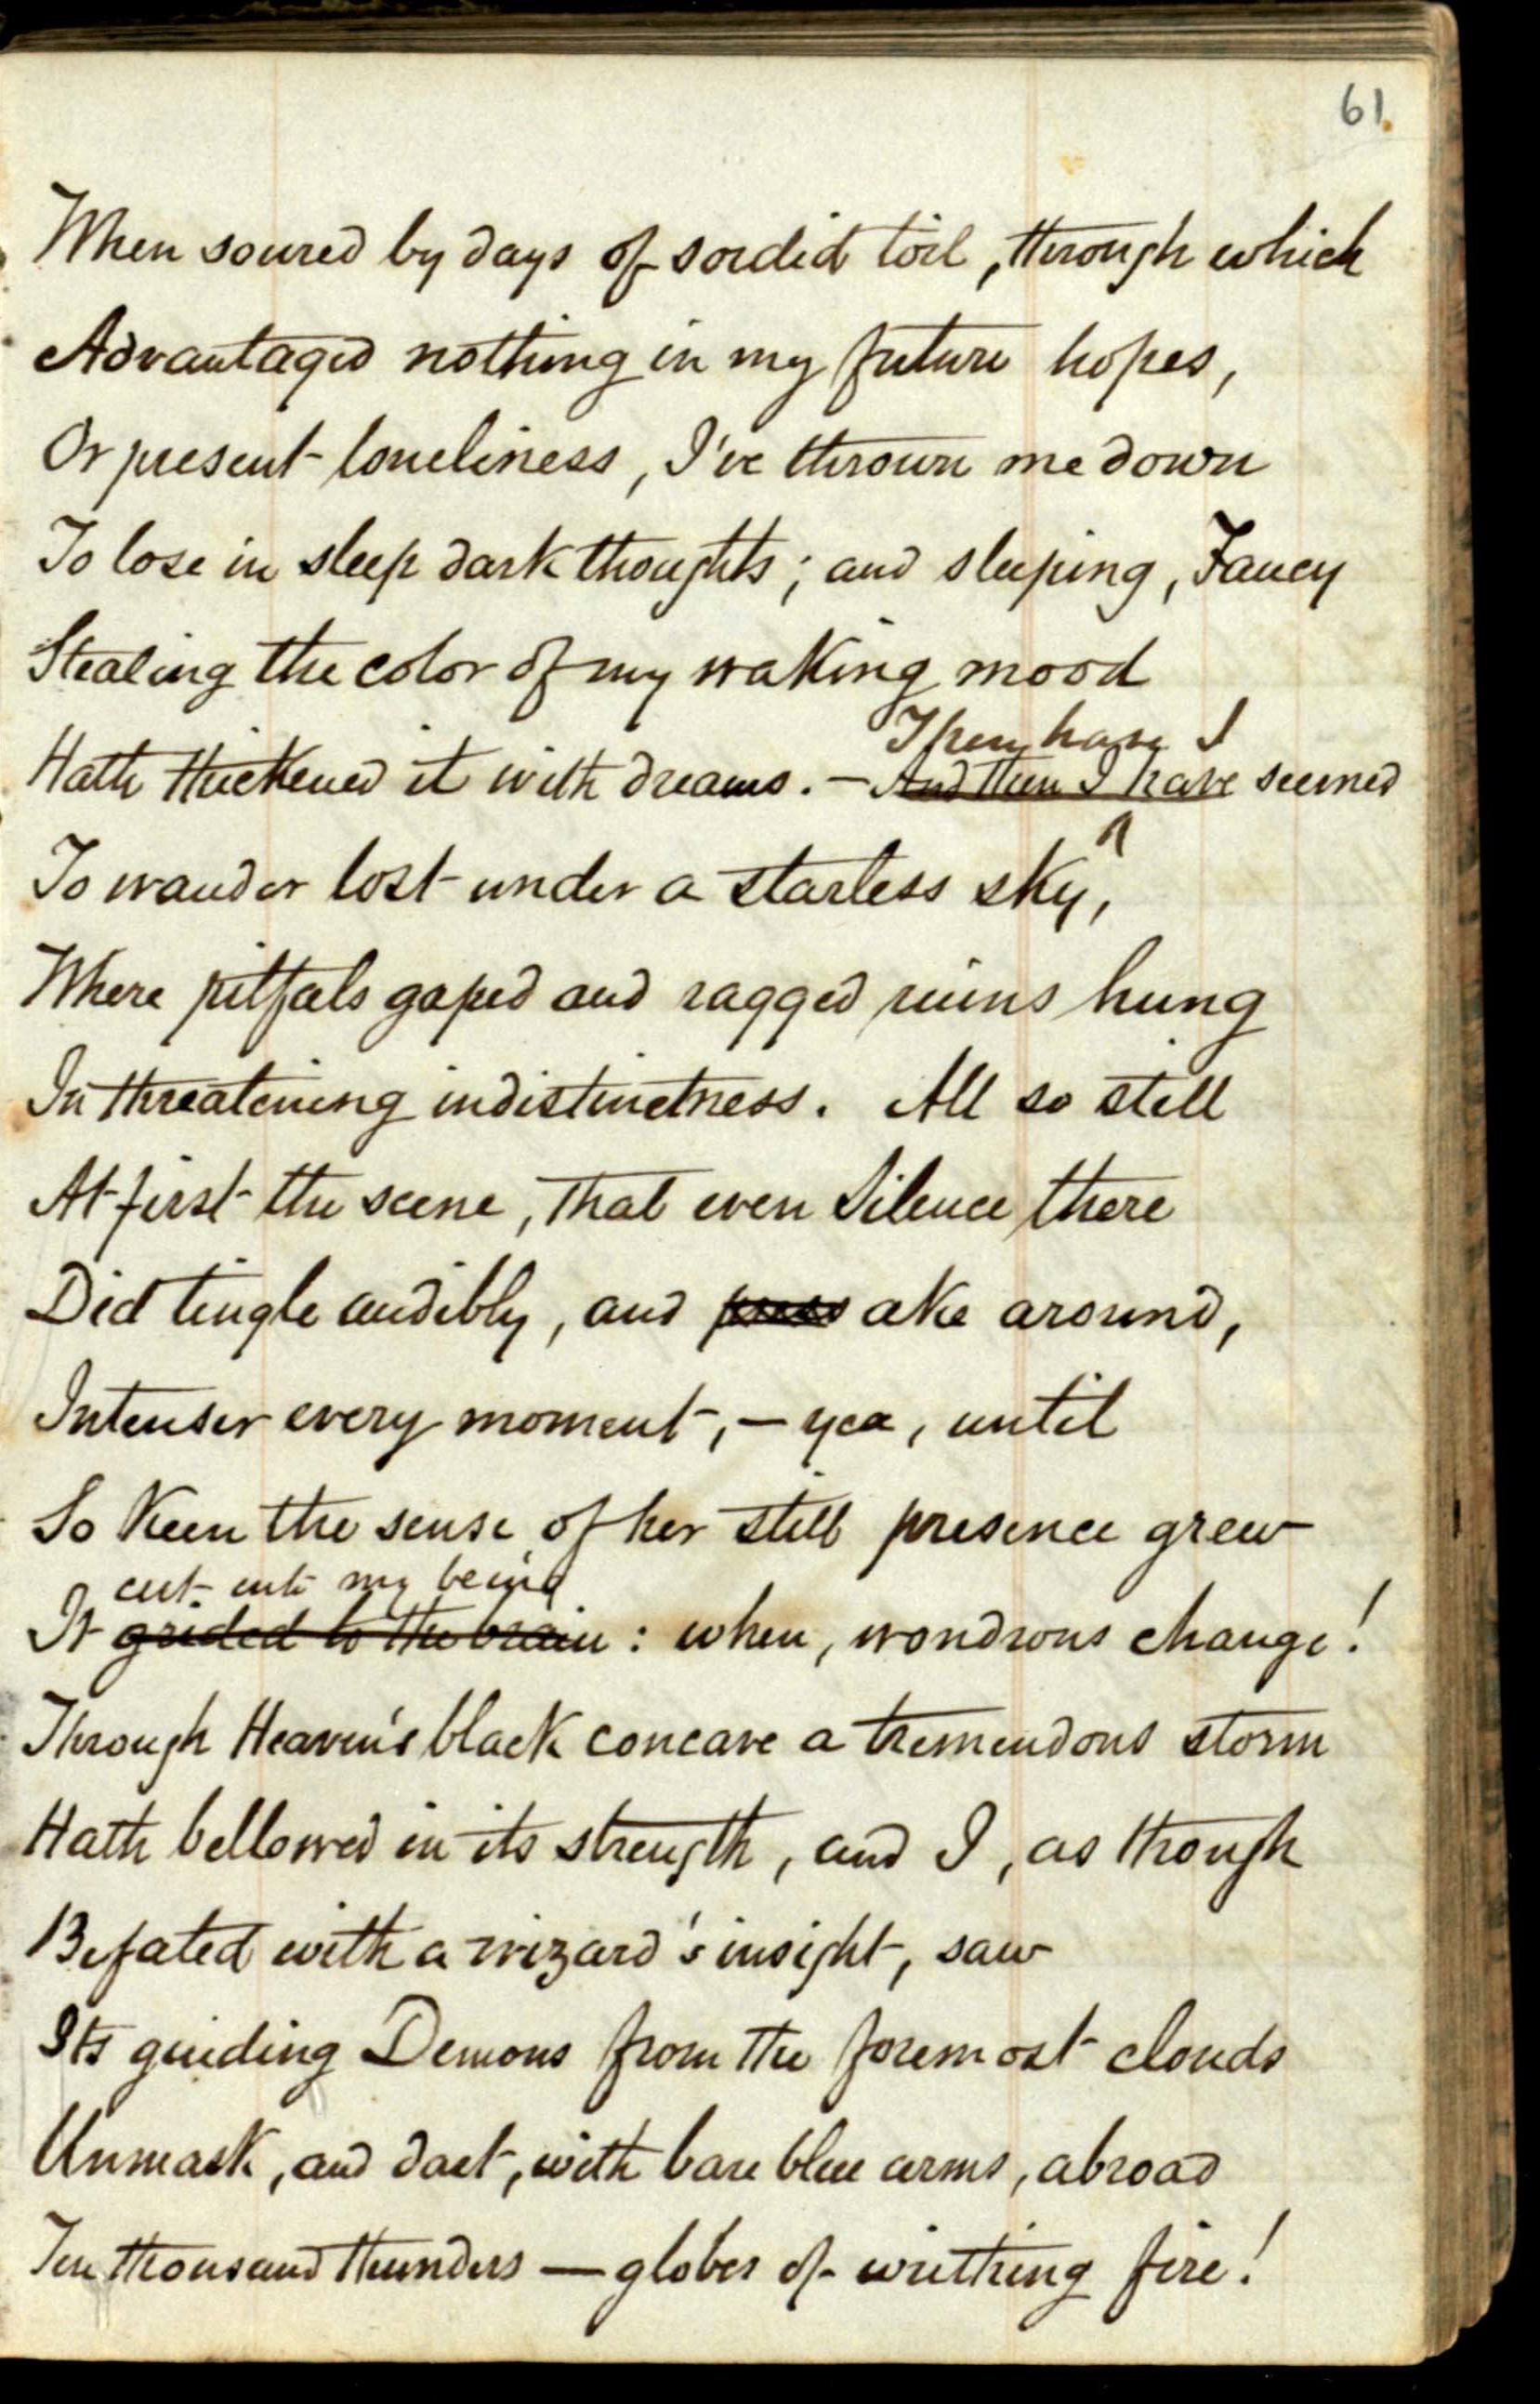 61.
When soured by days of sordid toil, through which
Advantaged nothing in my future hopes,
Or present loneliness, I've thrown me down
To lose in sleep dark thoughts; and sleeping, Fancy
Stealing the color of my waking mood
Then have I
Hath thickened it with dreams. — And then I have seemed
To wander lost under a starless sky,
Where pitfals gaped and ragged ruins hung
In threatening indistinctness. All so still
At first the scene, that even Silence there
Did tingle audibly, and ake around,
Intenser every moment, — yea, until
So keen the sense of her still presence grew
cut into my being
It grided to the brain : when, wondrous change!
Through Heaven's black concave a tremendous storm
Hath bellowed in its strength, and I, as though
Befated with a wizard's insight, saw
Its guiding Demons from the foremost clouds
Unmask, and dart, with bare blue arms, abroad
Ten thousand thunders — globes of writhing fire!